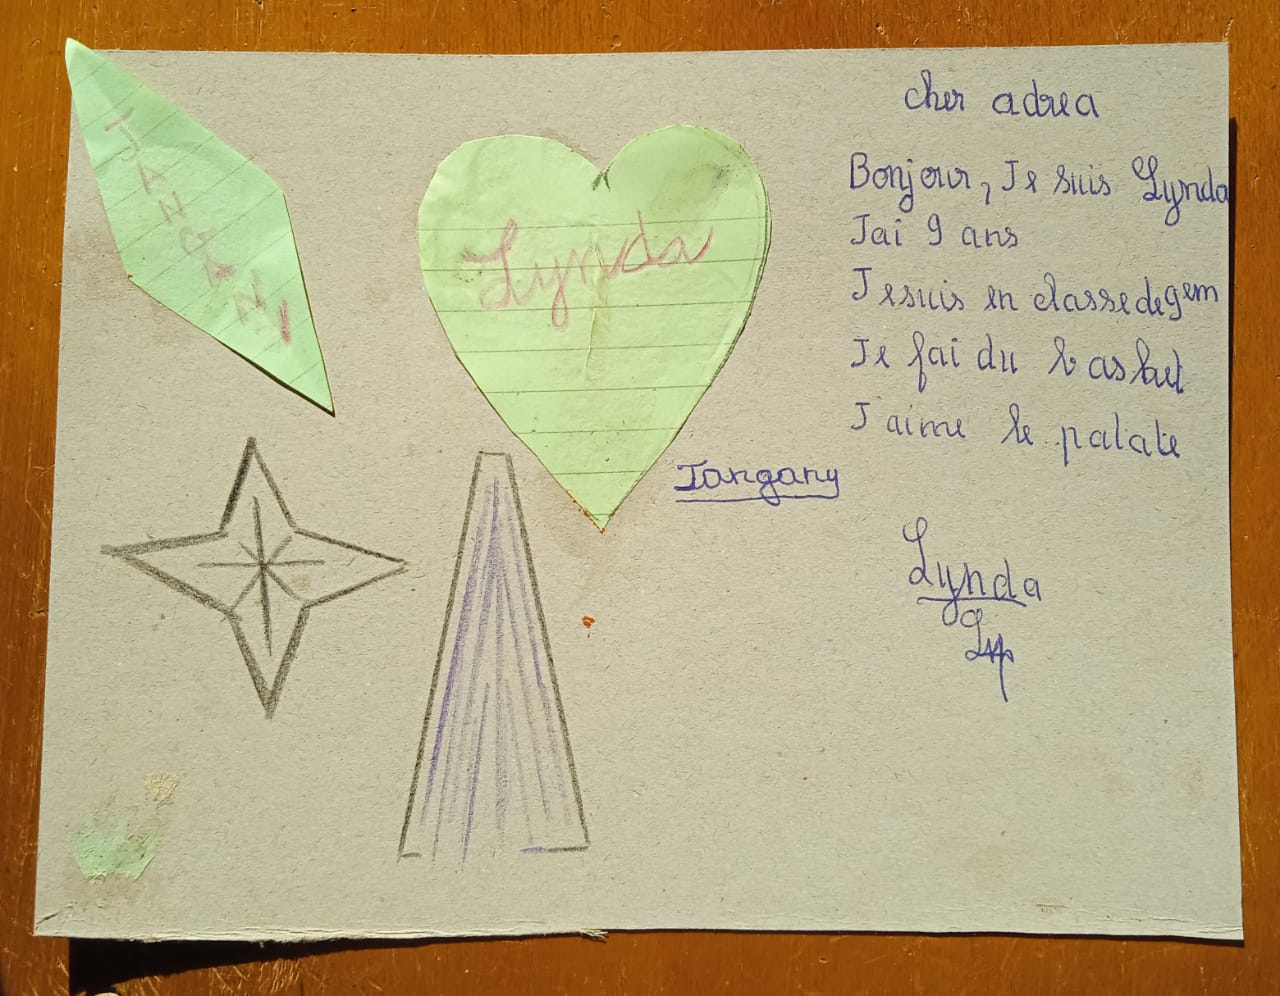 cher adrea
Bonjour, Je suis Lynda
Jai 9 ans
Jesuis en classe de 9em
Je fai du basket
J'aime le patate
Tangany
Lynda
TANGANI
Lynda